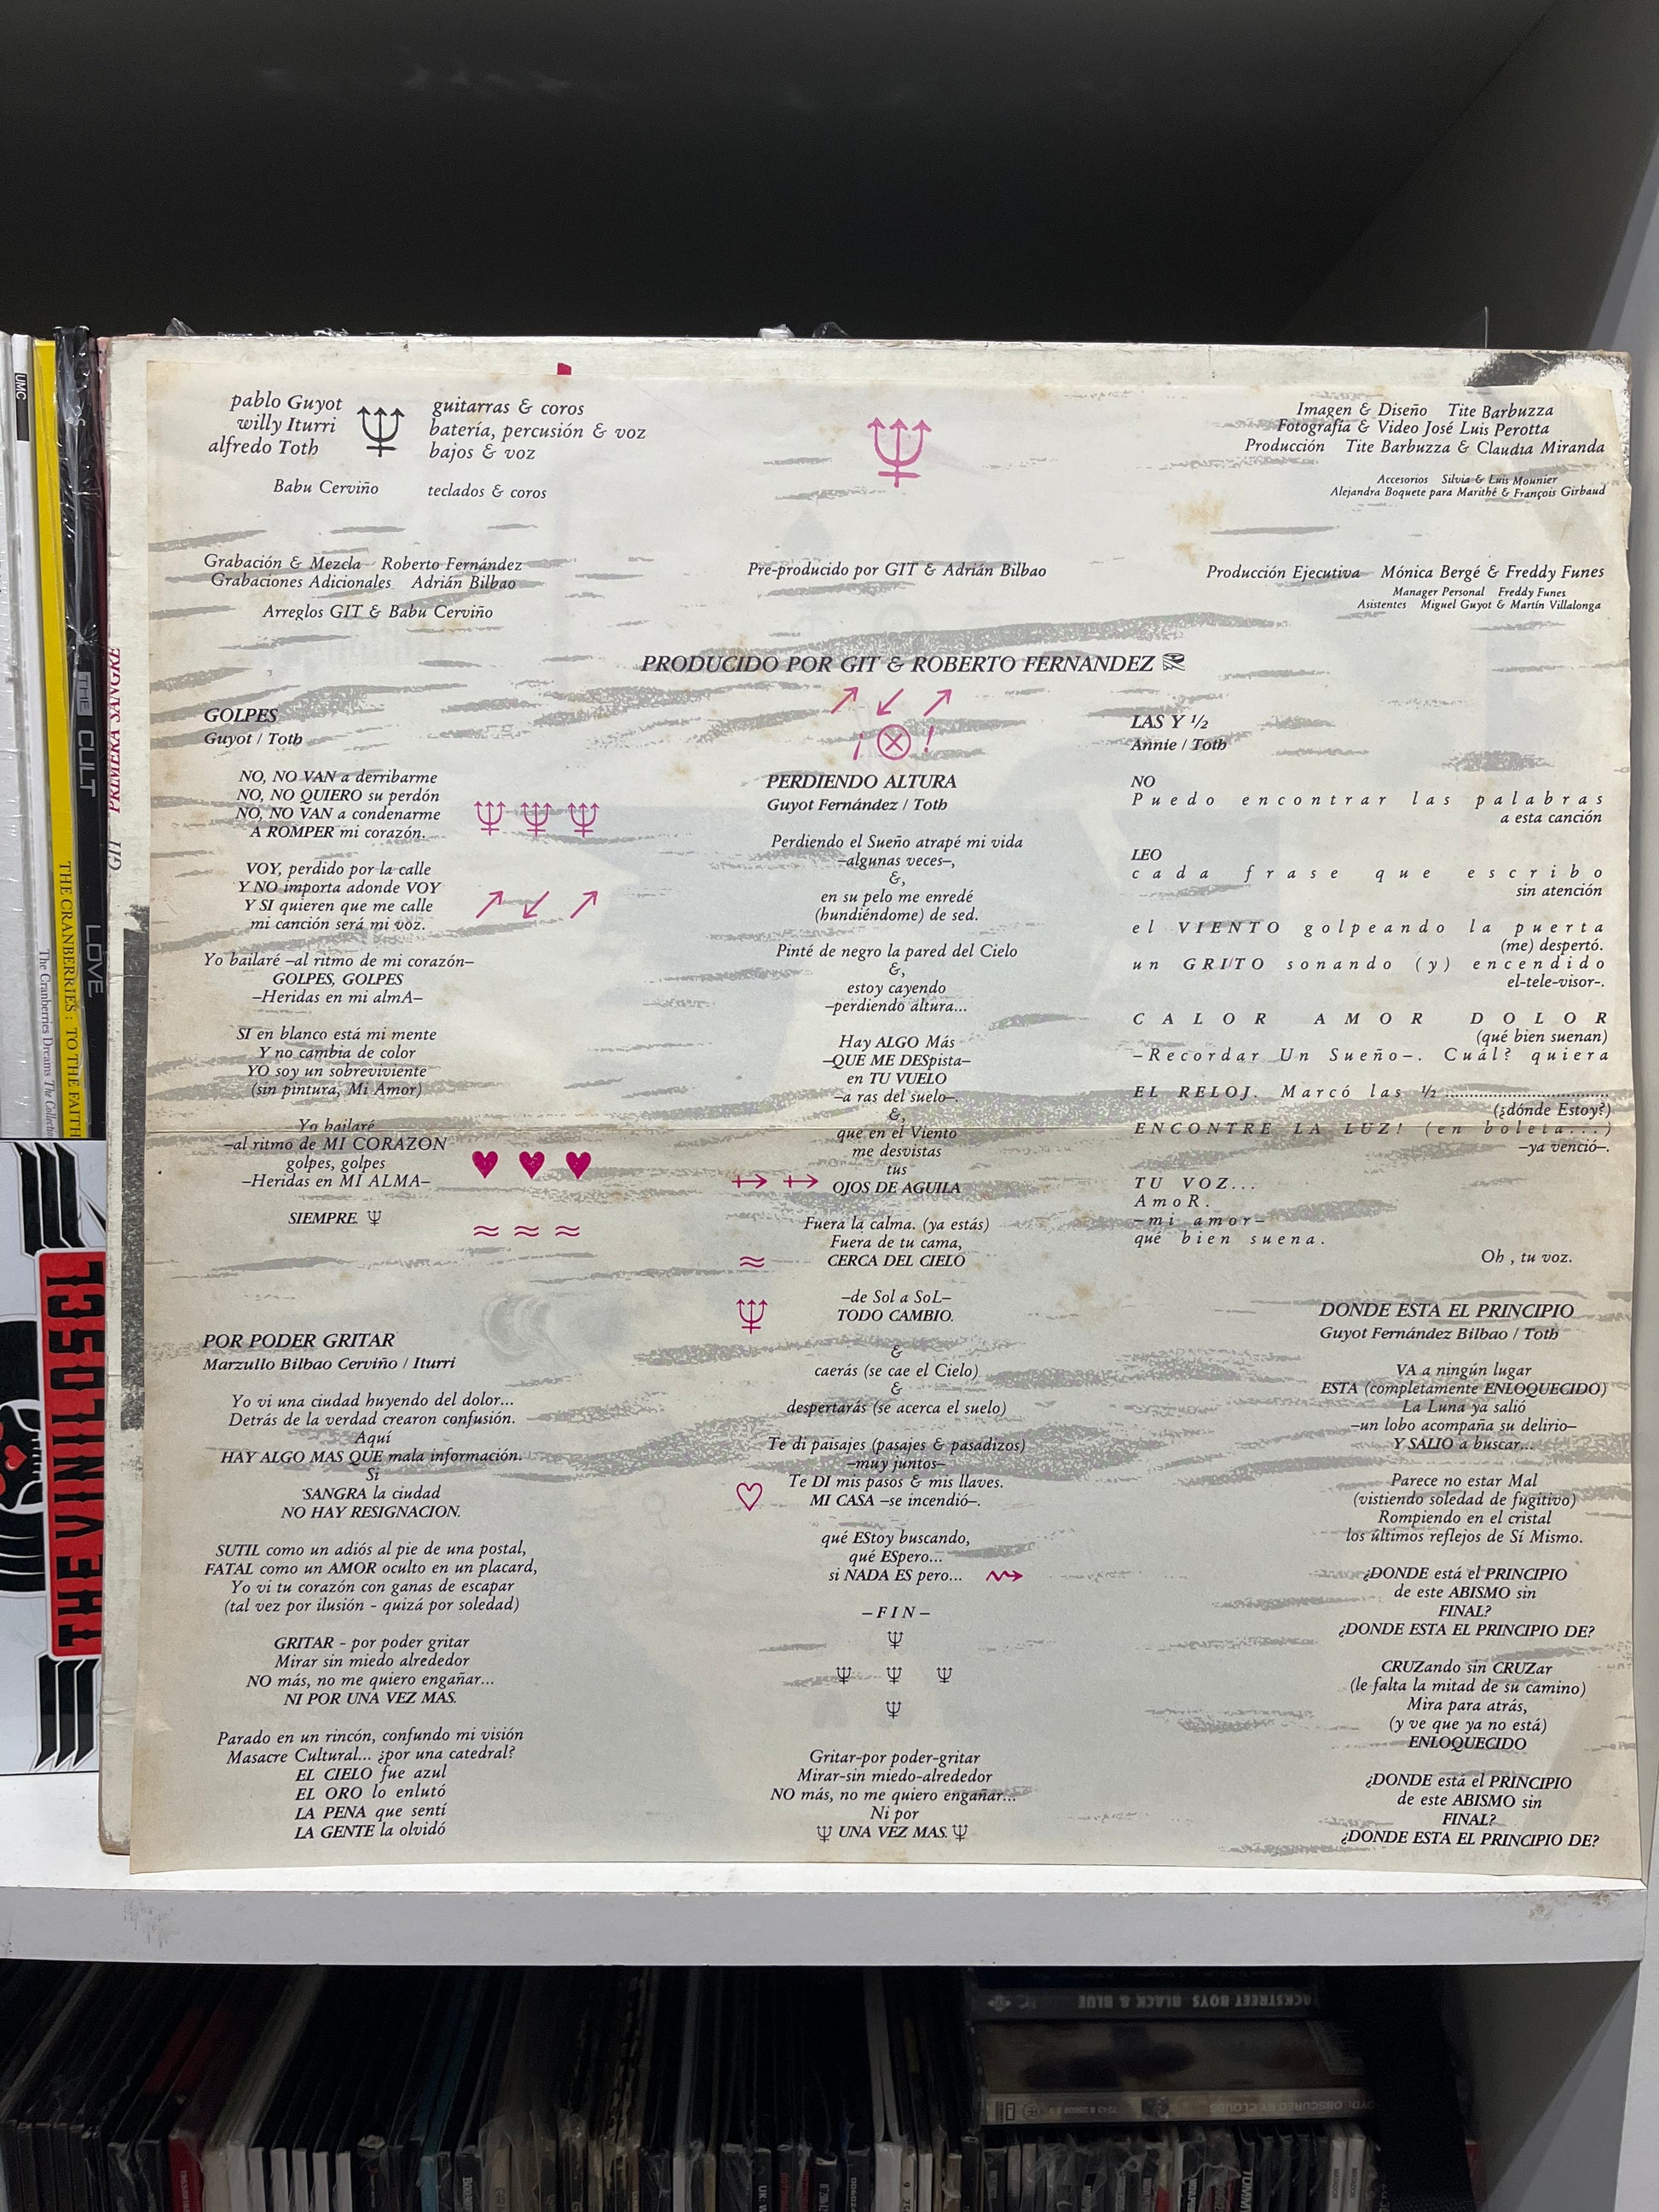 pablo Guyot guitarras & coros
willy Iturri batería, percusión & voz
alfredo Toth bajos & voz
Babu Cerviño teclados & coros
Imagen & Diseño Tite Barbuzza
Fotografía & Video José Luis Perotta
Producción Tite Barbuzza & Claudia Miranda
Accesorios Silvia & Luis Mounier
Alejandra Boquete para Marithé & François Girbaud
Grabación & Mezcla Roberto Fernández
Grabaciones Adicionales Adrián Bilbao
Arreglos GIT & Babu Cerviño
Pre-producido por GIT & Adrián Bilbao
Producción Ejecutiva Mónica Bergé & Freddy Funes
Manager Personal Freddy Funes
Asistentes Miguel Guyot & Martín Villalonga
PRODUCIDO POR GIT & ROBERTO FERNANDEZ
GOLPES
Guyot / Toth
NO, NO VAN a derribarme
NO, NO QUIERO su perdón
NO, NO VAN a condenarme
A ROMPER mi corazón.
VOY, perdido por la calle
Y NO importa adonde VOY
Y SI quieren que me calle
mi canción será mi voz.
Yo bailaré –al ritmo de mi corazón–
GOLPES, GOLPES
–Heridas en mi almA–
SI en blanco está mi mente
Y no cambia de color
YO soy un sobreviviente
(sin pintura, Mi Amor)
Yo bailaré
–al ritmo de MI CORAZON
golpes, golpes
–Heridas en MI ALMA–
SIEMPRE.
POR PODER GRITAR
Marzullo Bilbao Cerviño / Iturri
Yo vi una ciudad huyendo del dolor...
Detrás de la verdad crearon confusión.
Aquí
HAY ALGO MAS QUE mala información.
Si
SANGRA la ciudad
NO HAY RESIGNACION.
SUTIL como un adiós al pie de una postal,
FATAL como un AMOR oculto en un placard,
Yo vi tu corazón con ganas de escapar
(tal vez por ilusión - quizá por soledad)
GRITAR - por poder gritar
Mirar sin miedo alrededor
NO más, no me quiero engañar...
NI POR UNA VEZ MAS.
Parado en un rincón, confundo mi visión
Masacre Cultural... ¿por una catedral?
EL CIELO fue azul
EL ORO lo enlutó
LA PENA que sentí
LA GENTE la olvidó
¡ !
PERDIENDO ALTURA
Guyot Fernández / Toth
Perdiendo el Sueño atrapé mi vida
–algunas veces–,
&,
en su pelo me enredé
(hundiéndome) de sed.
Pinté de negro la pared del Cielo
&,
estoy cayendo
–perdiendo altura...
Hay ALGO Más
–QUE ME DESpista–
en TU VUELO
–a ras del suelo–.
&,
que en el Viento
me desvistas
tus
OJOS DE AGUILA
Fuera la calma. (ya estás)
Fuera de tu cama,
CERCA DEL CIELO
–de Sol a SoL–
TODO CAMBIO.
&
caerás (se cae el Cielo)
&
despertarás (se acerca el suelo)
Te di paisajes (pasajes & pasadizos)
–muy juntos–
Te DI mis pasos & mis llaves.
MI CASA –se incendió–.
qué EStoy buscando,
qué ESpero...
si NADA ES pero...
–FIN–
Gritar-por poder-gritar
Mirar-sin miedo-alrededor
NO más, no me quiero engañar...
Ni por
UNA VEZ MAS.
LAS Y 1/2
Annie / Toth
NO
Puedo encontrar las palabras
a esta canción
LEO
cada frase que escribo
sin atención
el VIENTO golpeando la puerta
(me) despertó.
un GRITO sonando (y) encendido
el-tele-visor-.
CALOR AMOR DOLOR
(qué bien suenan)
–Recordar Un Sueño–. Cuál? quiera
EL RELOJ. Marcó las 1/2 ..............................
(¿dónde Estoy?)
ENCONTRE LA LUZ! (en boleta...)
–ya venció–.
TU VOZ...
AmoR.
–mi amor–
qué bien suena.
Oh , tu voz.
DONDE ESTA EL PRINCIPIO
Guyot Fernández Bilbao / Toth
VA a ningún lugar
ESTA (completamente ENLOQUECIDO)
La Luna ya salió
–un lobo acompaña su delirio–
Y SALIO a buscar...
Parece no estar Mal
(vistiendo soledad de fugitivo)
Rompiendo en el cristal
los últimos reflejos de Sí Mismo.
¿DONDE está el PRINCIPIO
de este ABISMO sin
FINAL?
¿DONDE ESTA EL PRINCIPIO DE?
CRUZando sin CRUZar
(le falta la mitad de su camino)
Mira para atrás,
(y ve que ya no está)
ENLOQUECIDO
¿DONDE está el PRINCIPIO
de este ABISMO sin
FINAL?
¿DONDE ESTA EL PRINCIPIO DE?
UMC
The Cranberries Dreams The
THE CRANBERRIES: TO THE FAITH
THE CULT LOVE
GIT PRIMERA SANGRE
THE VINILOSCL
CKSTREET BOYS BLACK & BLUE
OBSCURED BY CLOUDS